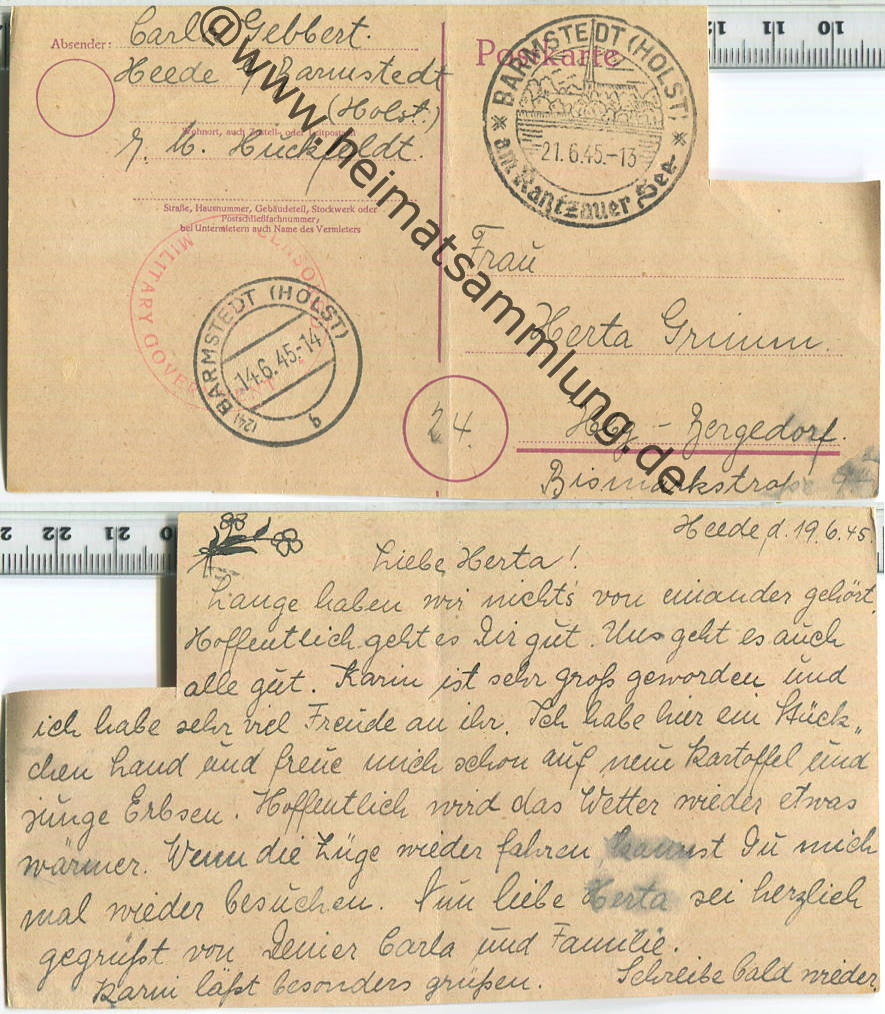 Absender: Carla Gebbert.
Heede / Barmstedt
(Holst.)
Wohnort, auch Zustell- oder Leitpostamt
b. M. Hückfeldt.
Straße, Hausnummer, Gebäudeteil, Stockwerk oder
Postschließfachnummer,
bei Untermietern auch Name des Vermieters
Postkarte
BARMSTEDT (HOLST)
21.6.45.-13
am Rantzauer See
MILITARY GOVERNMENT CENSORSHIP
(24) BARMSTEDT (HOLST)
14.6.45.-14
Frau
Herta Grimm.
24.
Hbg - Bergedorf.
Bismarkstraße
@www.heimatsammlung.de
10 11
22 21 20
Heede, d. 19.6.45.
Liebe Herta!
Lange haben wir nichts von einander gehört.
Hoffentlich geht es Dir gut. Uns geht es auch
alle gut. Karin ist sehr groß geworden und
ich habe sehr viel Freude an ihr. Ich habe hier ein Stück„
chen Land und freue mich schon auf neue Kartoffel und
junge Erbsen. Hoffentlich wird das Wetter wieder etwas
wärmer. Wenn die Züge wieder fahren, kannst Du mich
mal wieder besuchen. Nun liebe Herta sei herzlich
gegrüßt von Deiner Carla und Familie.
Karin läßt besonders grüßen. Schreibe bald wieder.